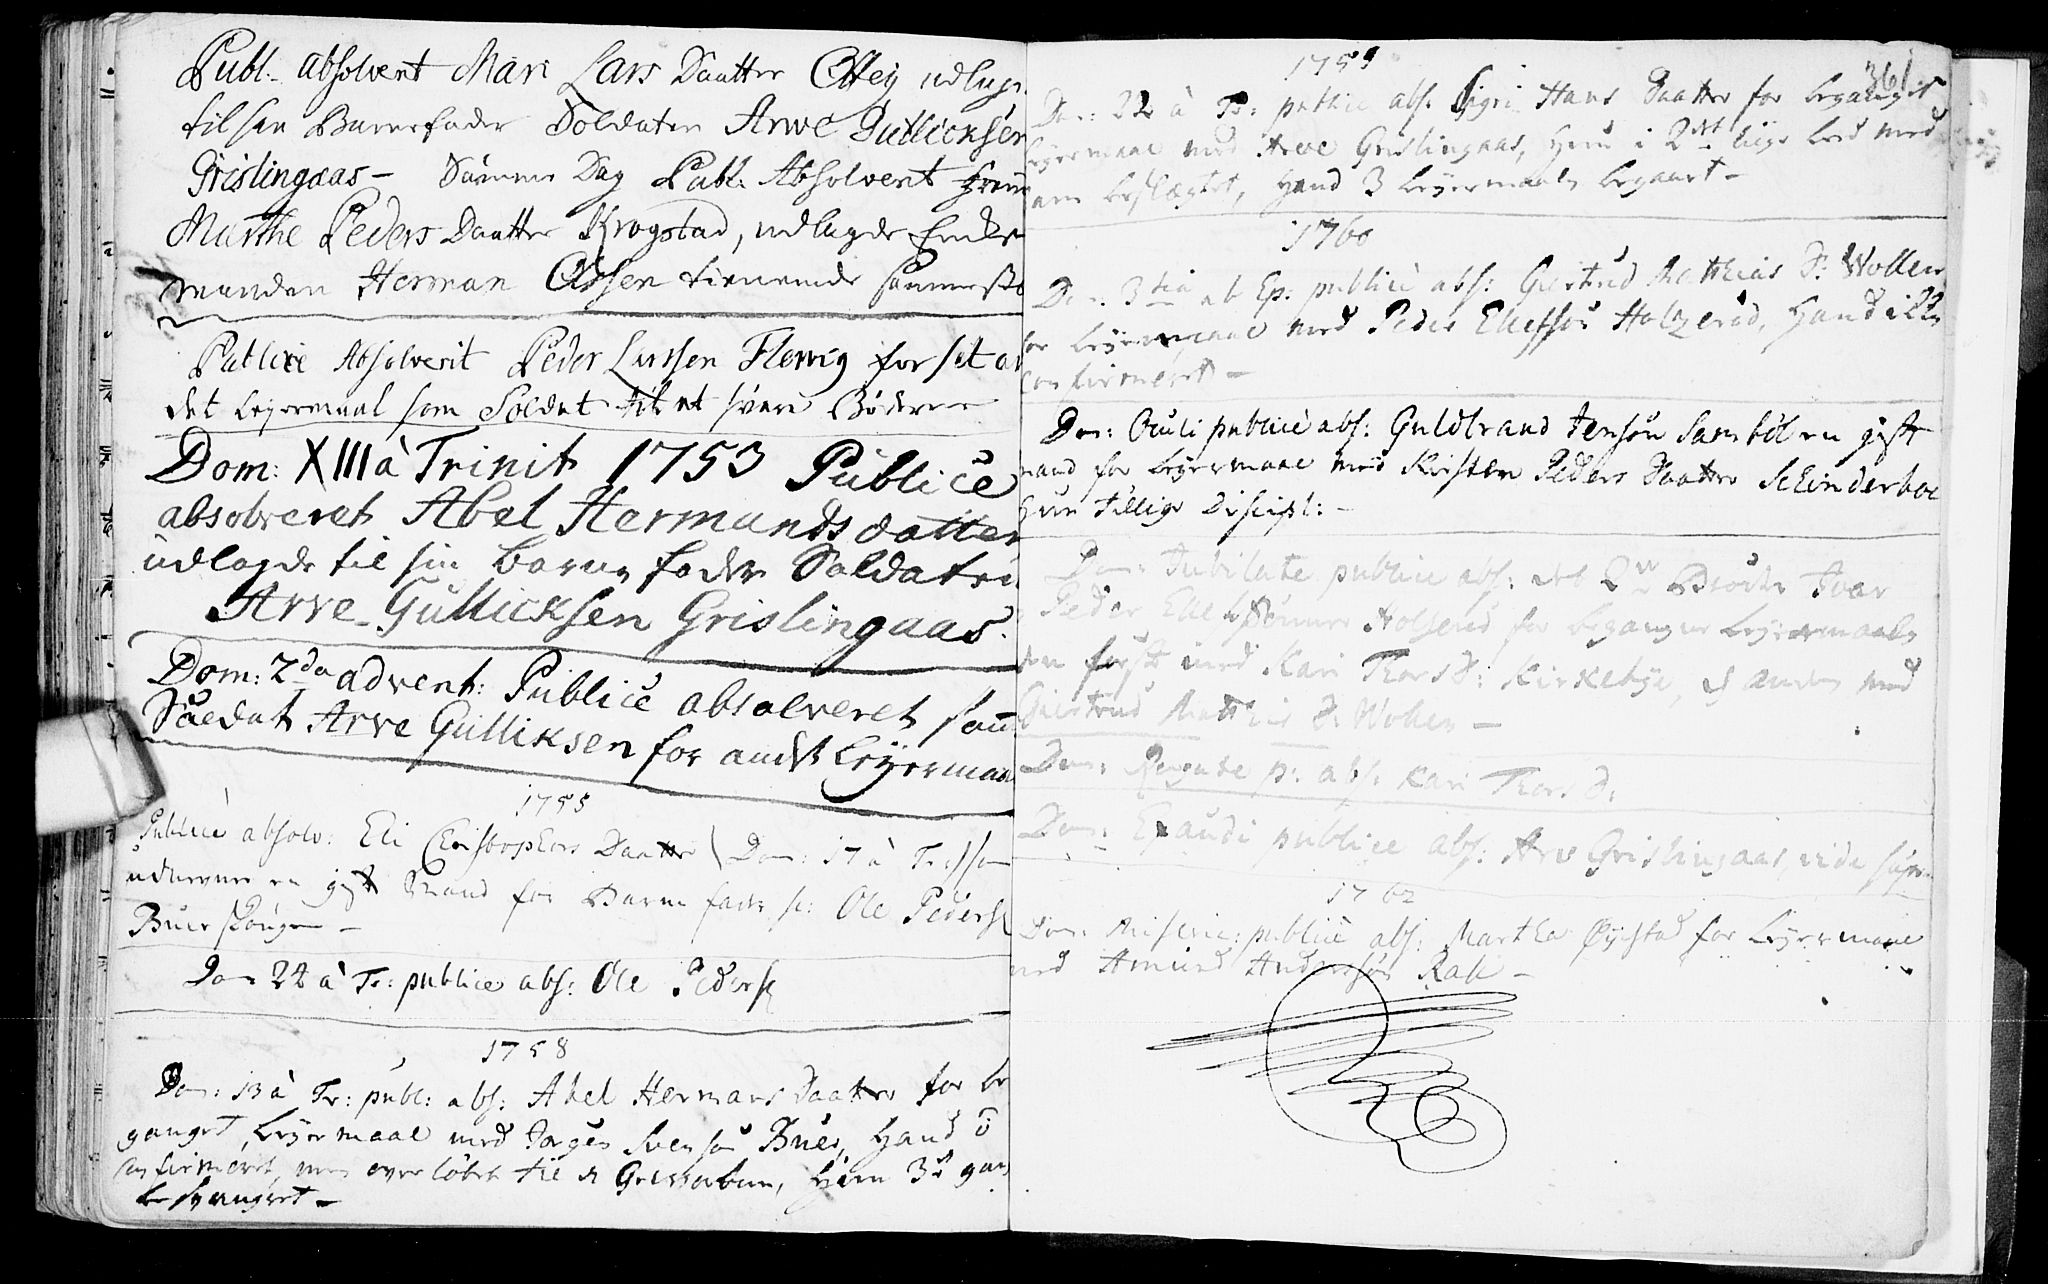 Publ. absolvent Mari Lars Daatter Ottey udlagt
til sin Barnefader Soldaten Arwe Gullicksen
Grislingaas — Samme Dag Publ. Absolvent
Marthe Peders Daatter Krogstad, udlagde Enke
manden Herman Olssen tienende sammest
Publice Absolverit Peder Larssen Flewig for sit an
det Leyermaal som Soldat til at svare Bøderne
Dom: XIII à Trinit 1753 Publice
absolveret Abel Hermands datter
udlagde til sin barne fader Soldaten
Arve Gullicksen Grislingaas.
Dom: 2da advent: Publice absolveret
Soldat Arve Gulliksen for andet Leyermaa
1755
Publice absolv: Eli Christophers Daatter Dom: 17 à Tr: som
udnevnte en gift Mand for Barne fader Ole Peders
Buer
Dom 24 à Tr: publice abs: Ole Peders
1758
Dom: 13 à Tr: publ: abs: Abel Hermans Daatter for be
ganget Leyermaal med Jørgen Svensøn Buer, Hand
confirmeret, men over løbet til Hun 3de gang
besvangret —
361
1759
Dom: 22 à Tr: publice abs. Sigri Hans Daatter for begangit
Leyermaal med Arve Grislingaas, Hun i 2det liige Leed med
ham beslægtet, Hand 3 Leyermaals begaaet —
1760
Dom. 3tia ab Ep: publicè abs: Giertrud Matthias D: Wollen
for Leyermaal med Peder Ellefsøn Holzerød, Hand
confirmeret —
Dom: Oculi publicè abs: Guldbrand Jensøn Samsbøl en gift
mand for Leyermaal med Kirsten Peders Daatter Schinderboe
Hun tillige Discipl: —
Dom: Jubilate publice abs: de 2de Brødre Ivar
Peder Ellefsønner Holserud for begangne Leyermaal
den første med Kari Thors D: Kirkebye, d anden med
Giertrud Matthis D: Wollen —
Dom: Rogate p: abs: Kari Thors D:
Dom: Exaudi publice abs: Arve Grislingaas, vide supr
1762
Dom: Miseric: publice abs: Martha Øystad for Leyermaal
med Amund Andersøn Rak —